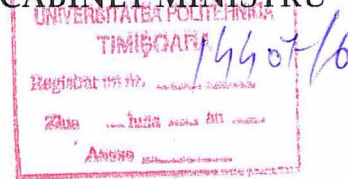 CABINET MINISTRU
UNIVERSITATEA POLITEHNICA
TIMIȘOARA
Registrat nr.
Ziua luna an
Anexe